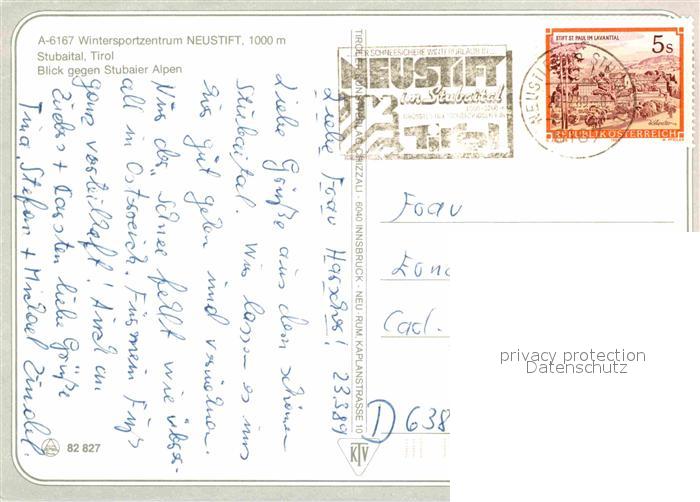 A-6167 Wintersportzentrum NEUSTIFT, 1000 m
Stubaital, Tirol
Blick gegen Stubaier Alpen
Liebe Frau 23.3.89
Liebe Grüße aus dem schönen
Stubaital. Wir lassen es uns
gut gehen und verwöhnen.
Nur der Schnee fehlt wie über-
all in Österreich. Für mein Fuß
ganz vorteilhaft! Auch an
+ Karsten liebe Grüße
Tina, Stefan + Michael Zindel.
82 827
TIROLER KUNSTVERLAG CHIZZALI · 6040 INNSBRUCK - NEU-RUM, KAPLANSTRASSE 10
KTV
NEUSTIFT
im Stubaital
Tirol
STIFT ST. PAUL IM LAVANTTAL
5 S
REPUBLIK ÖSTERREICH
Frau
Carl.
D 638
privacy protection
Datenschutz